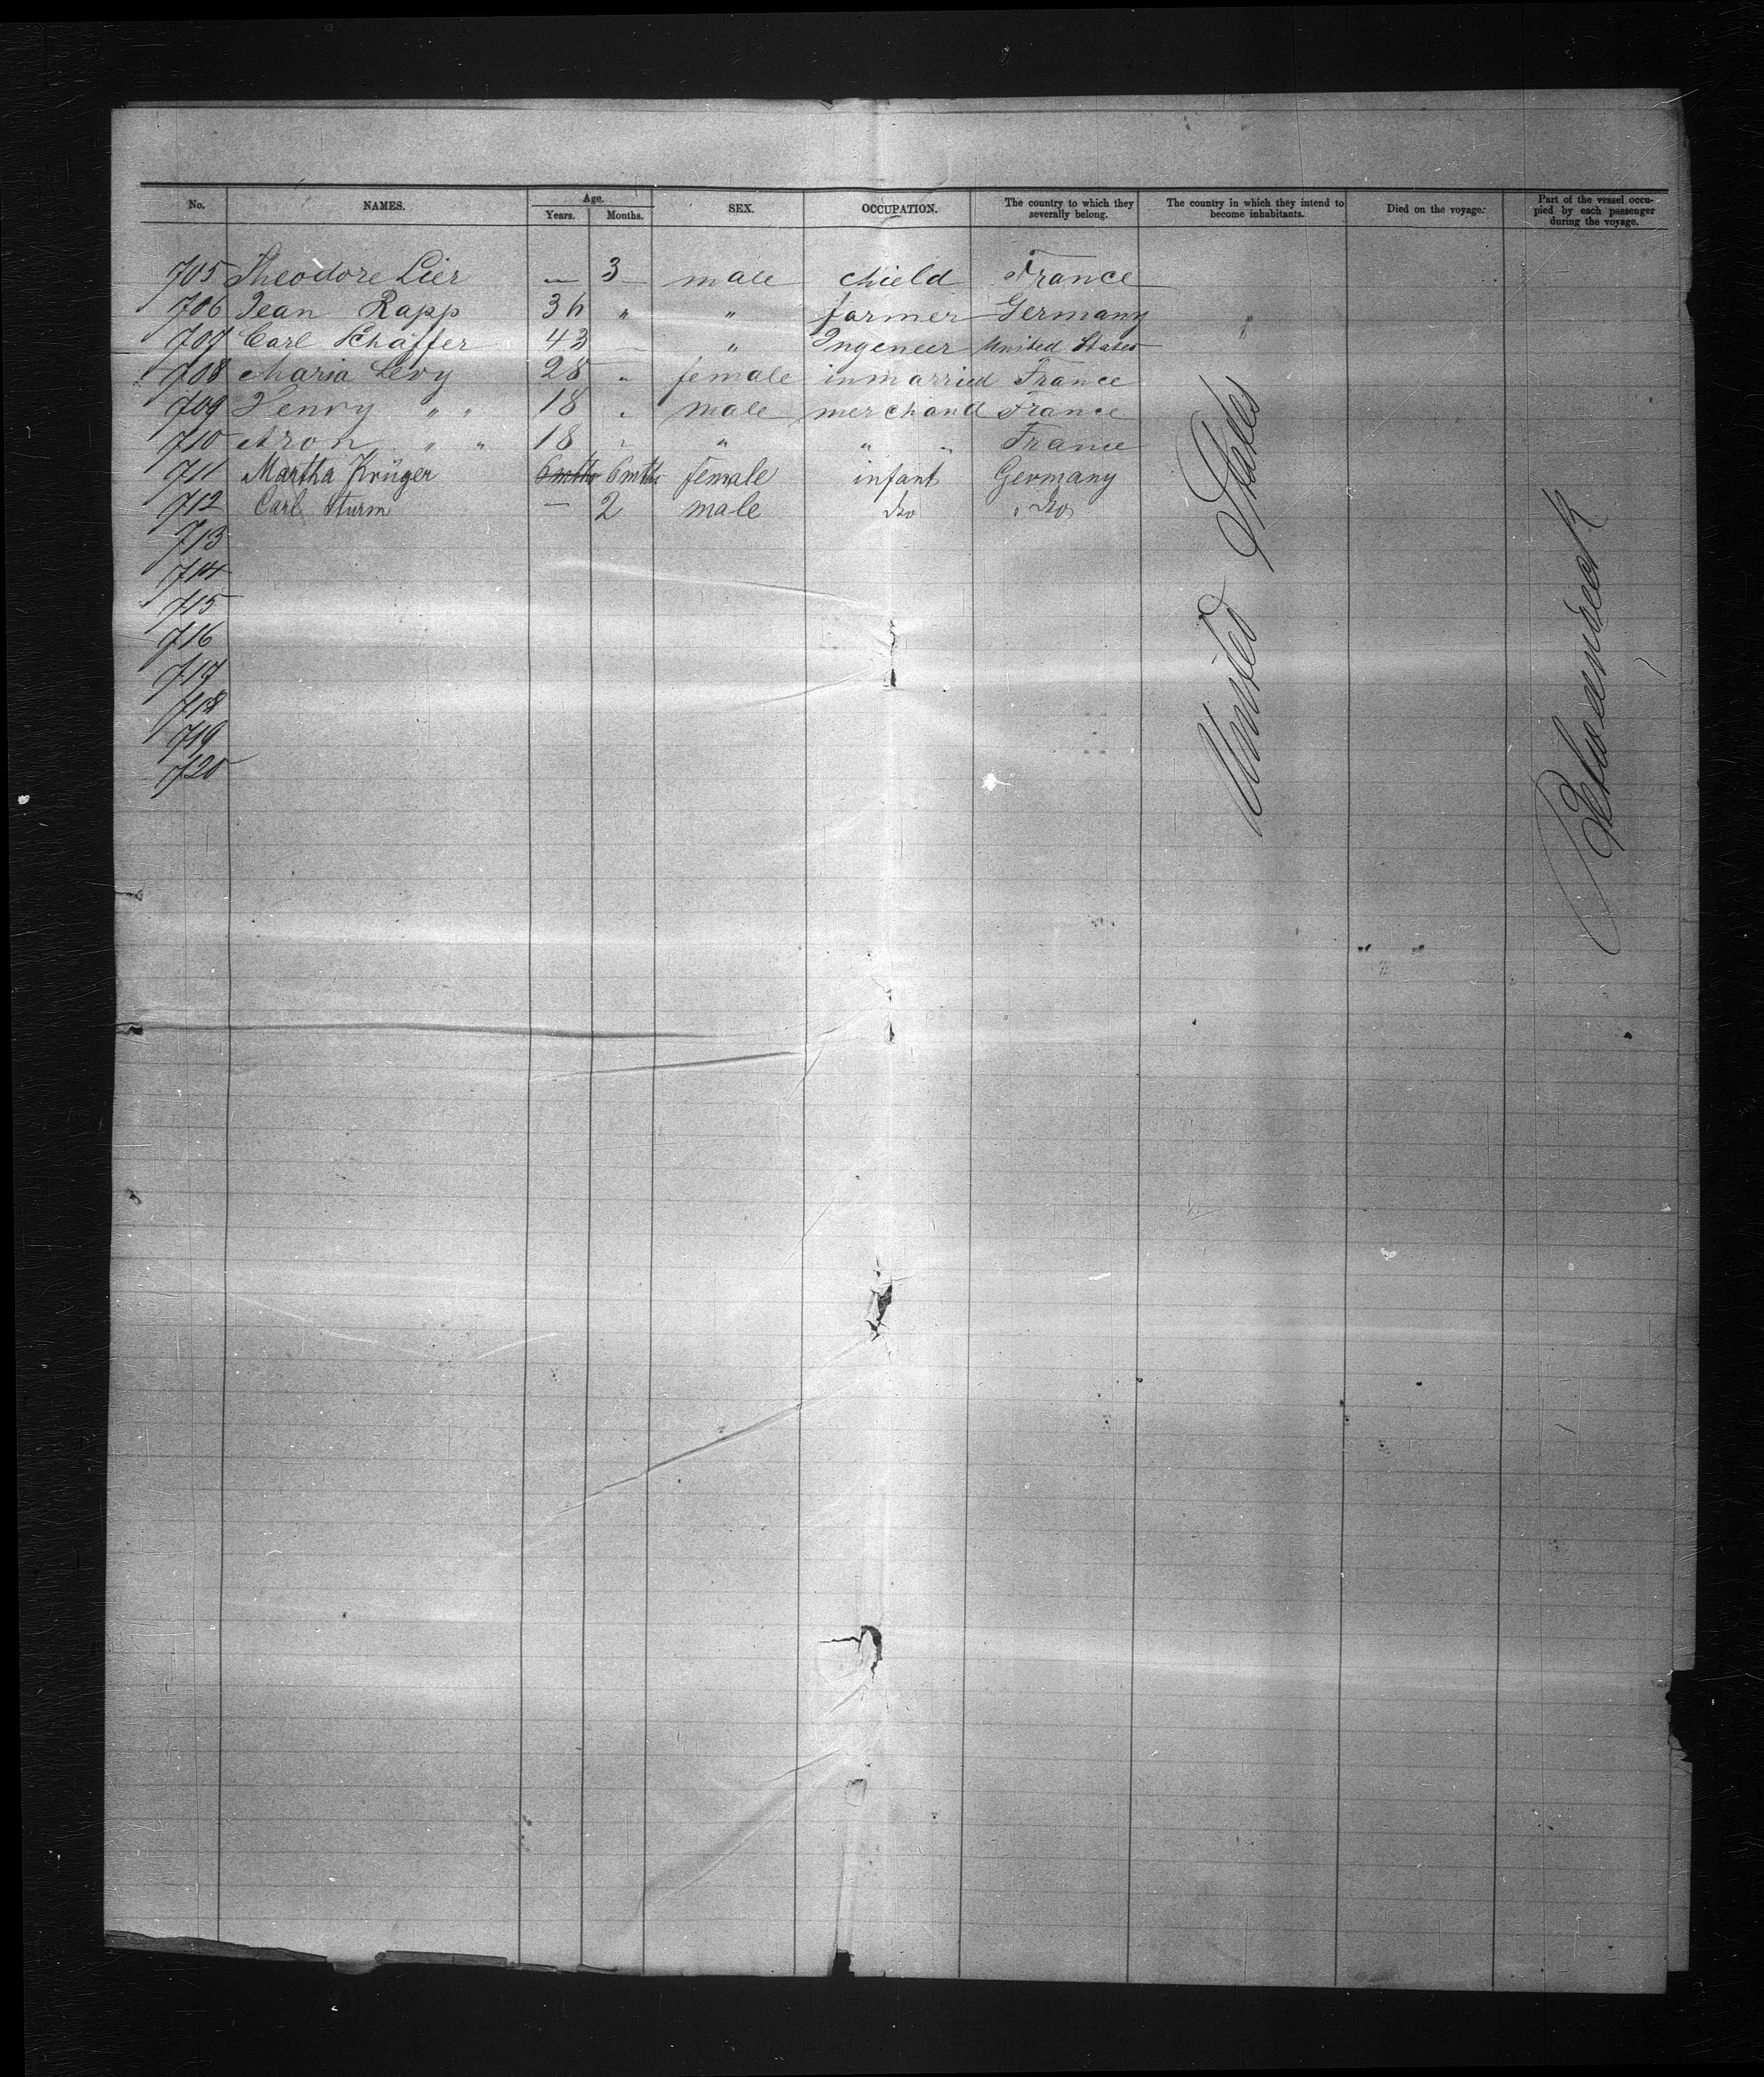 No. NAMES. Age. Years. Months. SEX. OCCUPATION. The country to which they severally belong. The country in which they intend to become inhabitants. Died on the voyage. Part of the vessel occupied by each passenger during the voyage.
705 Theodore Lier — 3 — male chield France
706 Jean Rapp 36 " " farmer Germany
707 Carl Schäffer 43 — " Ingeneer United States
708 Maria Levy 28 " female inmarried France
709 Henry " " 18 " male merchand France
710 Aron " " 18 " " " " France
711 Martha Krüger 6mths 6mths female infant Germany
712 Carl Sturm — 2 male do " do
713
714
715
716
717
718
719
720
United States
Betweendeck